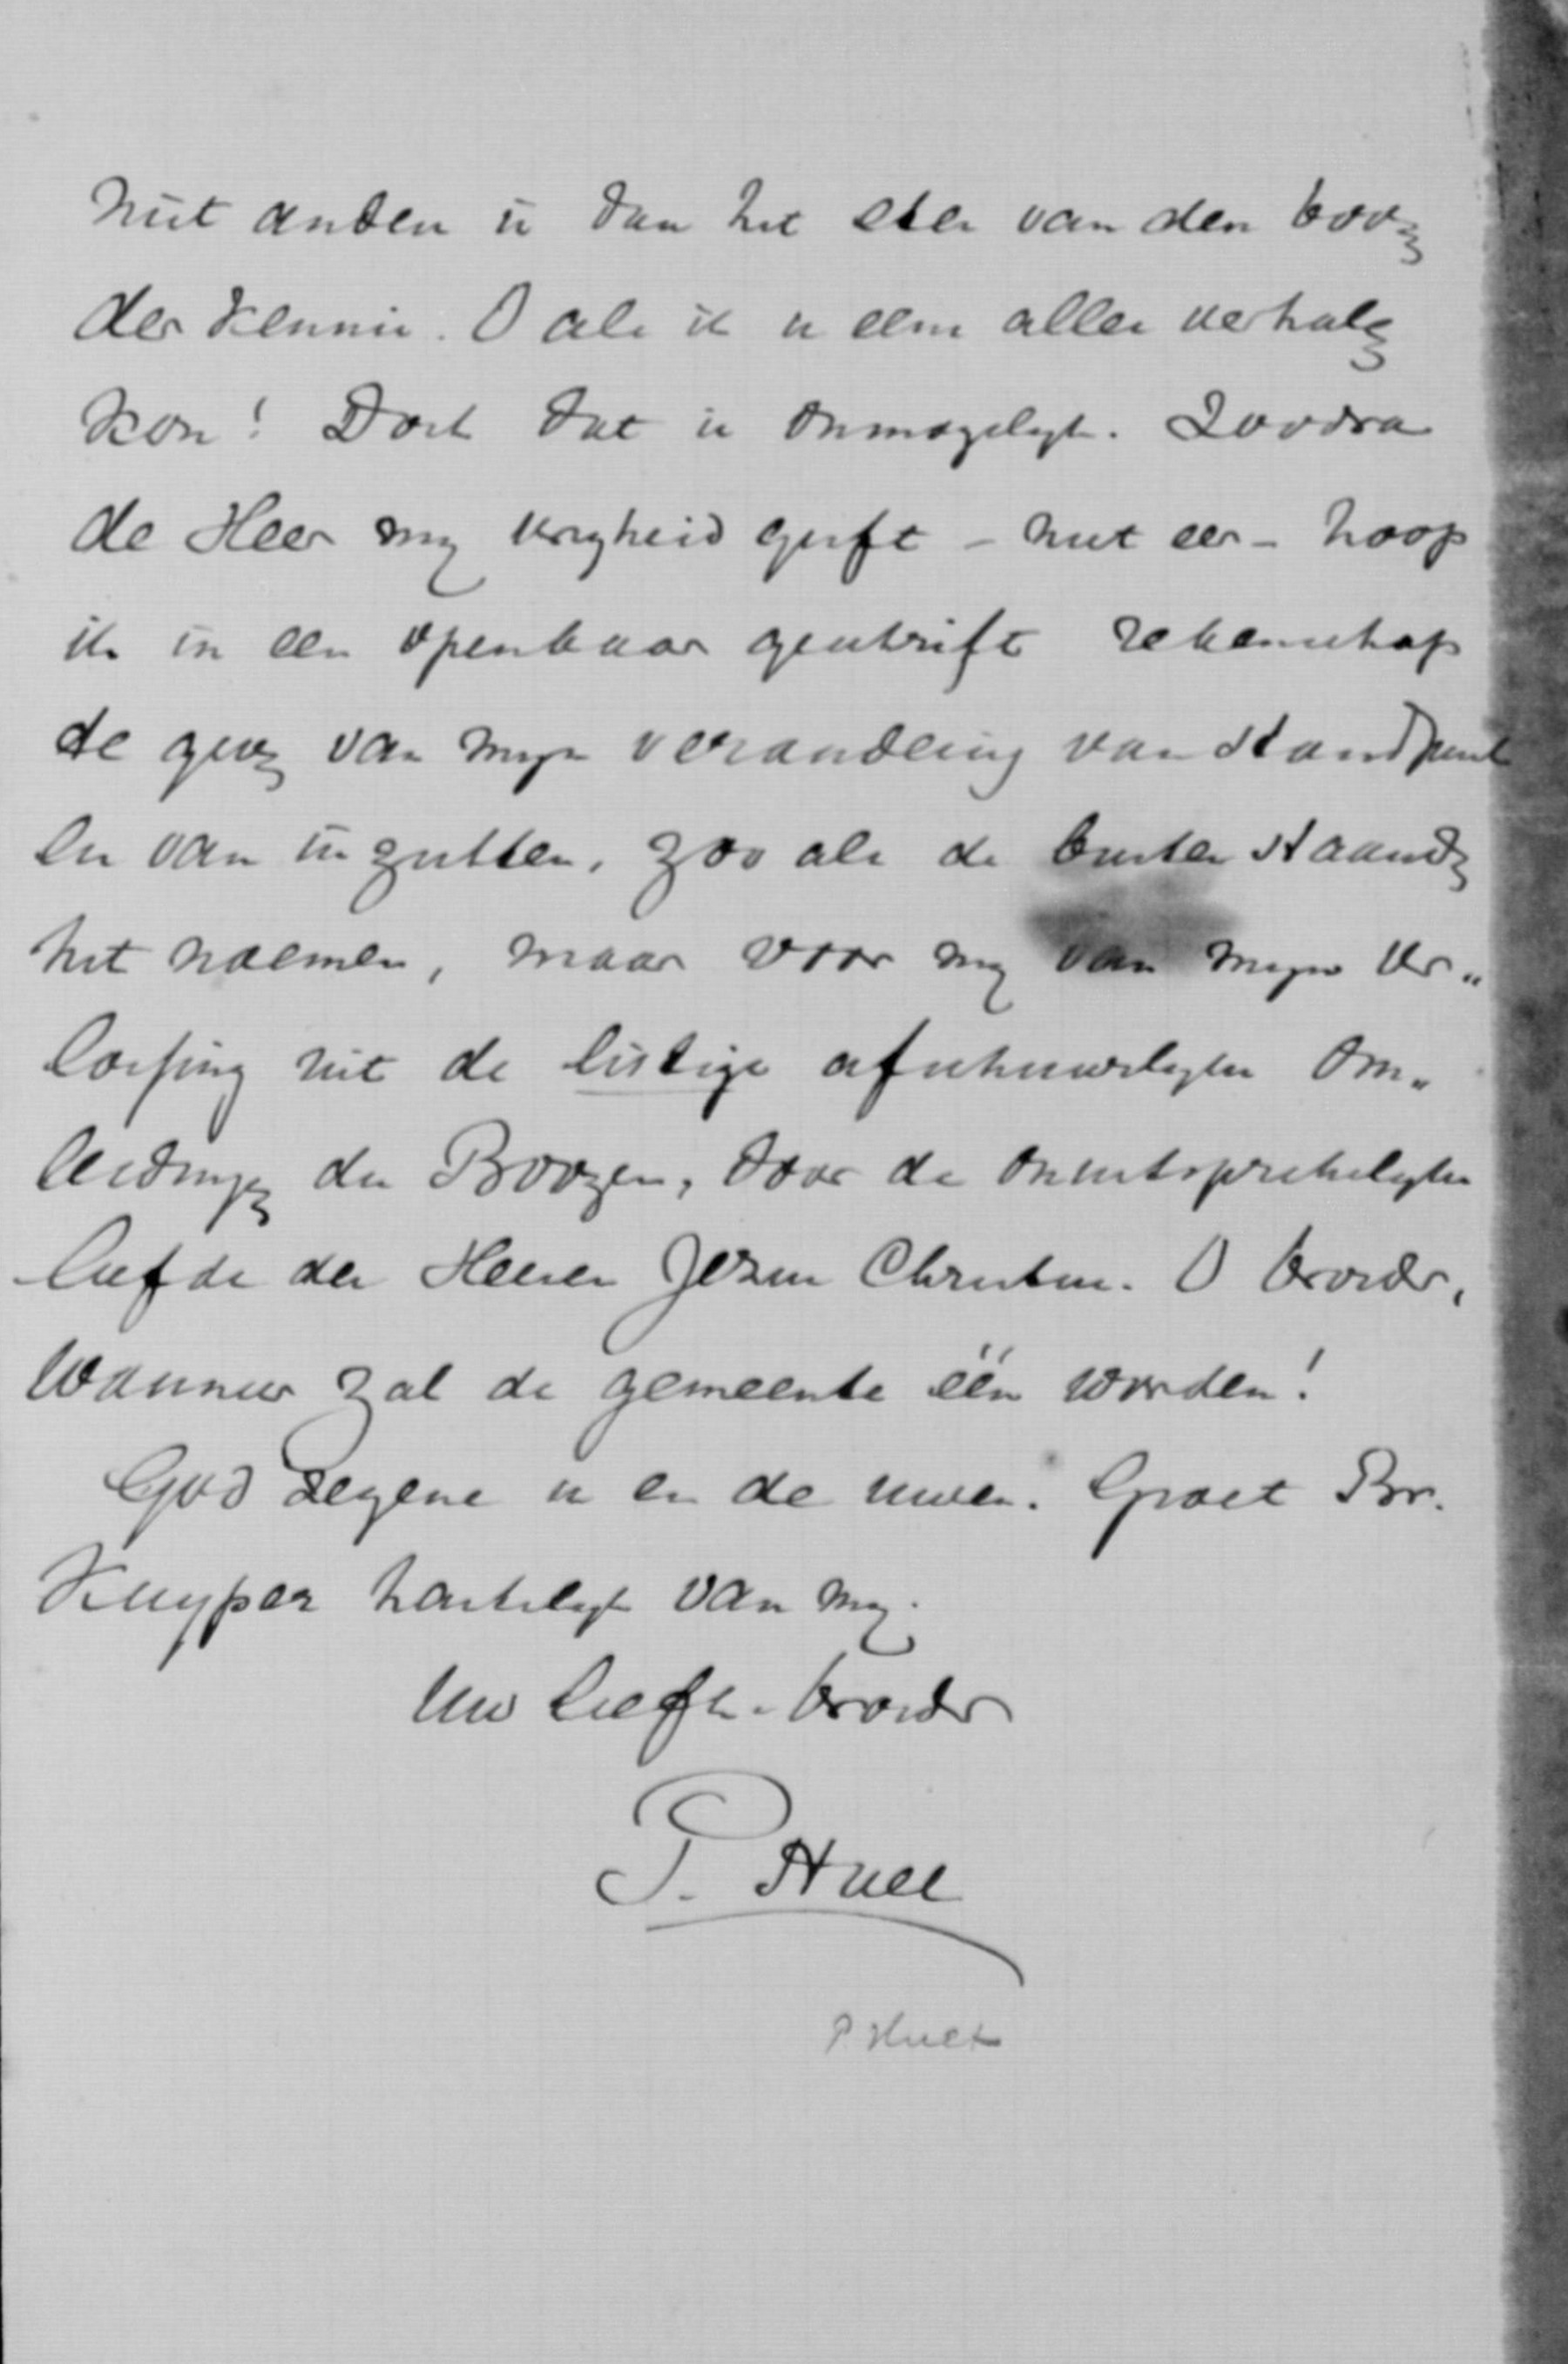 niet anders is dan het eten van den boom
der kennis. O als ik u eens alles verhalen
kon! Doch dat is onmogelyk. Zoodra
de Heer my vryheid geeft – niet eer – hoop
ik in een openbaar geschrift rekenschap
te geven van myn verandering van standpunt
en van inzichten, zoo als de buiten staanden
het noemen, maar voor my van myne ver„
lossing uit de listige afschuwelyke om„
leidingen des Boozen, door de onuitsprekelyke
liefde des Heeren Jezus Christus. O broeder,
wanneer zal de gemeente één worden!
God zegene u en de uwen. Groet Br.
Kuyper hartelyk van my.
Uw liefh. broeder
P. Huet
P Huet